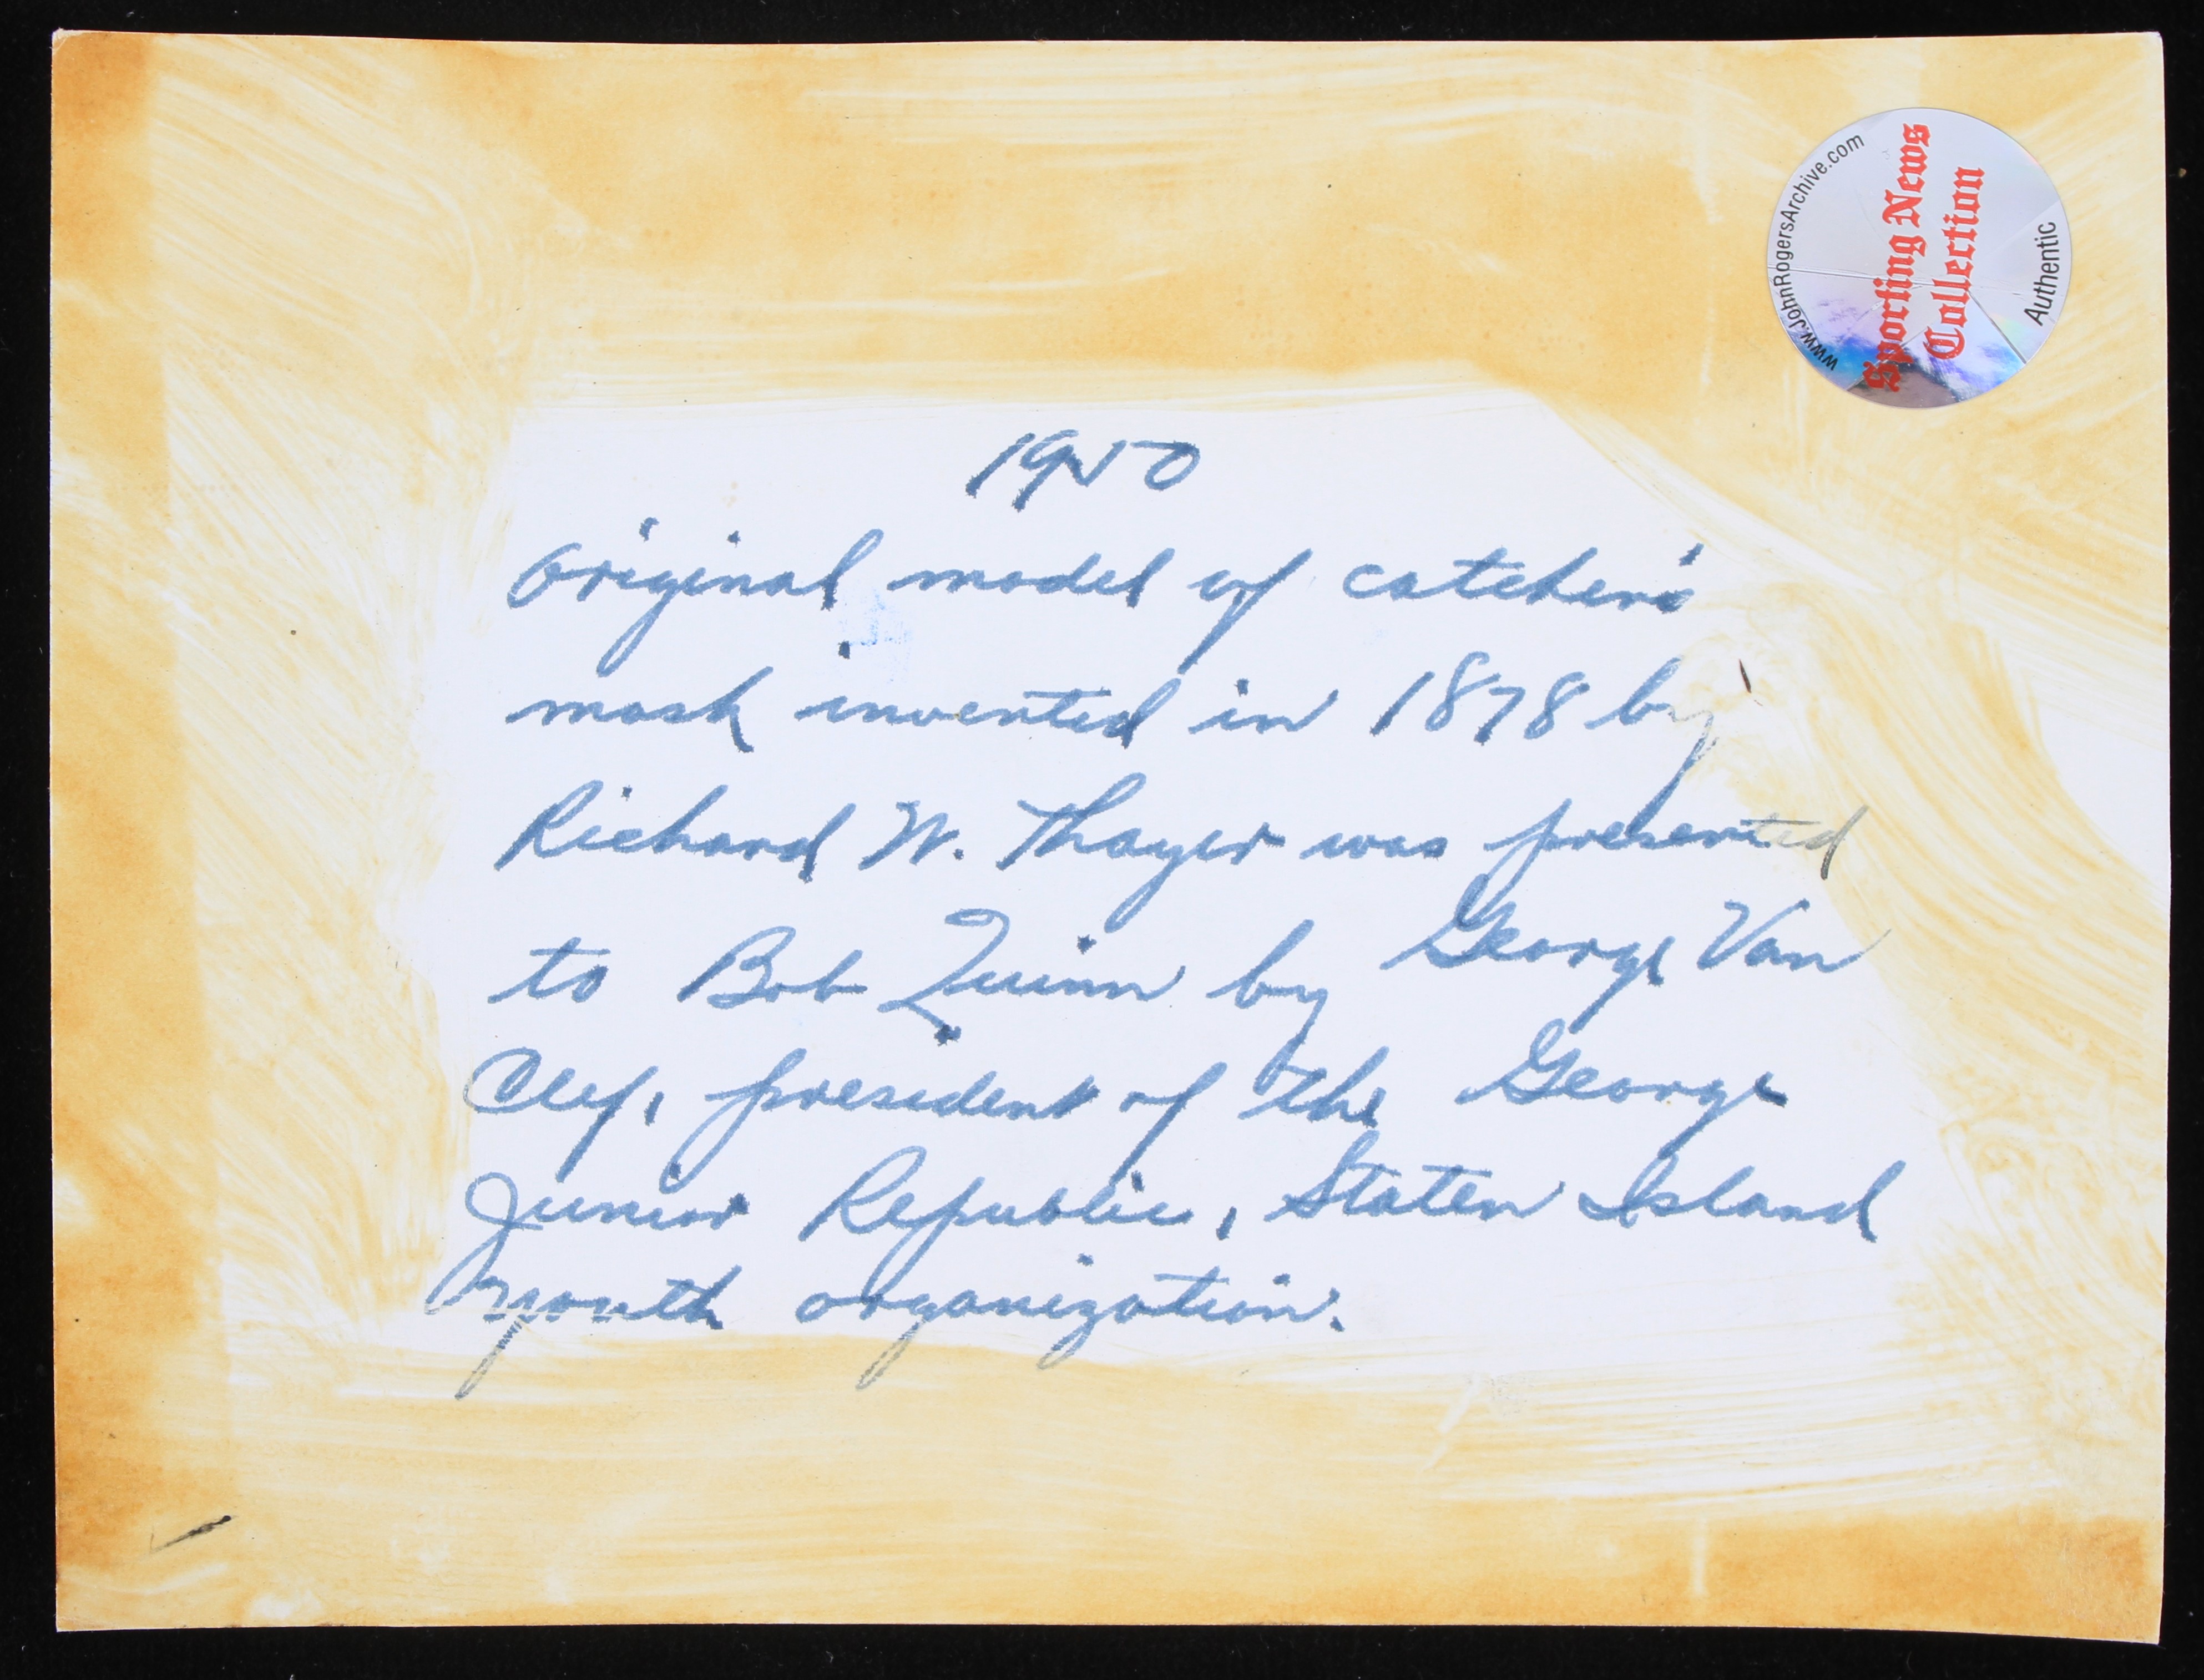 1950
Original model of catcher's
mask invented in 1878 by
Richard W. Thayer was presented
to Bob Quinn by George Van
Clef, president of the George
Junior Republic, Staten Island
youth organization.
www.JohnRogersArchive.com
Sporting News
Collection
Authentic